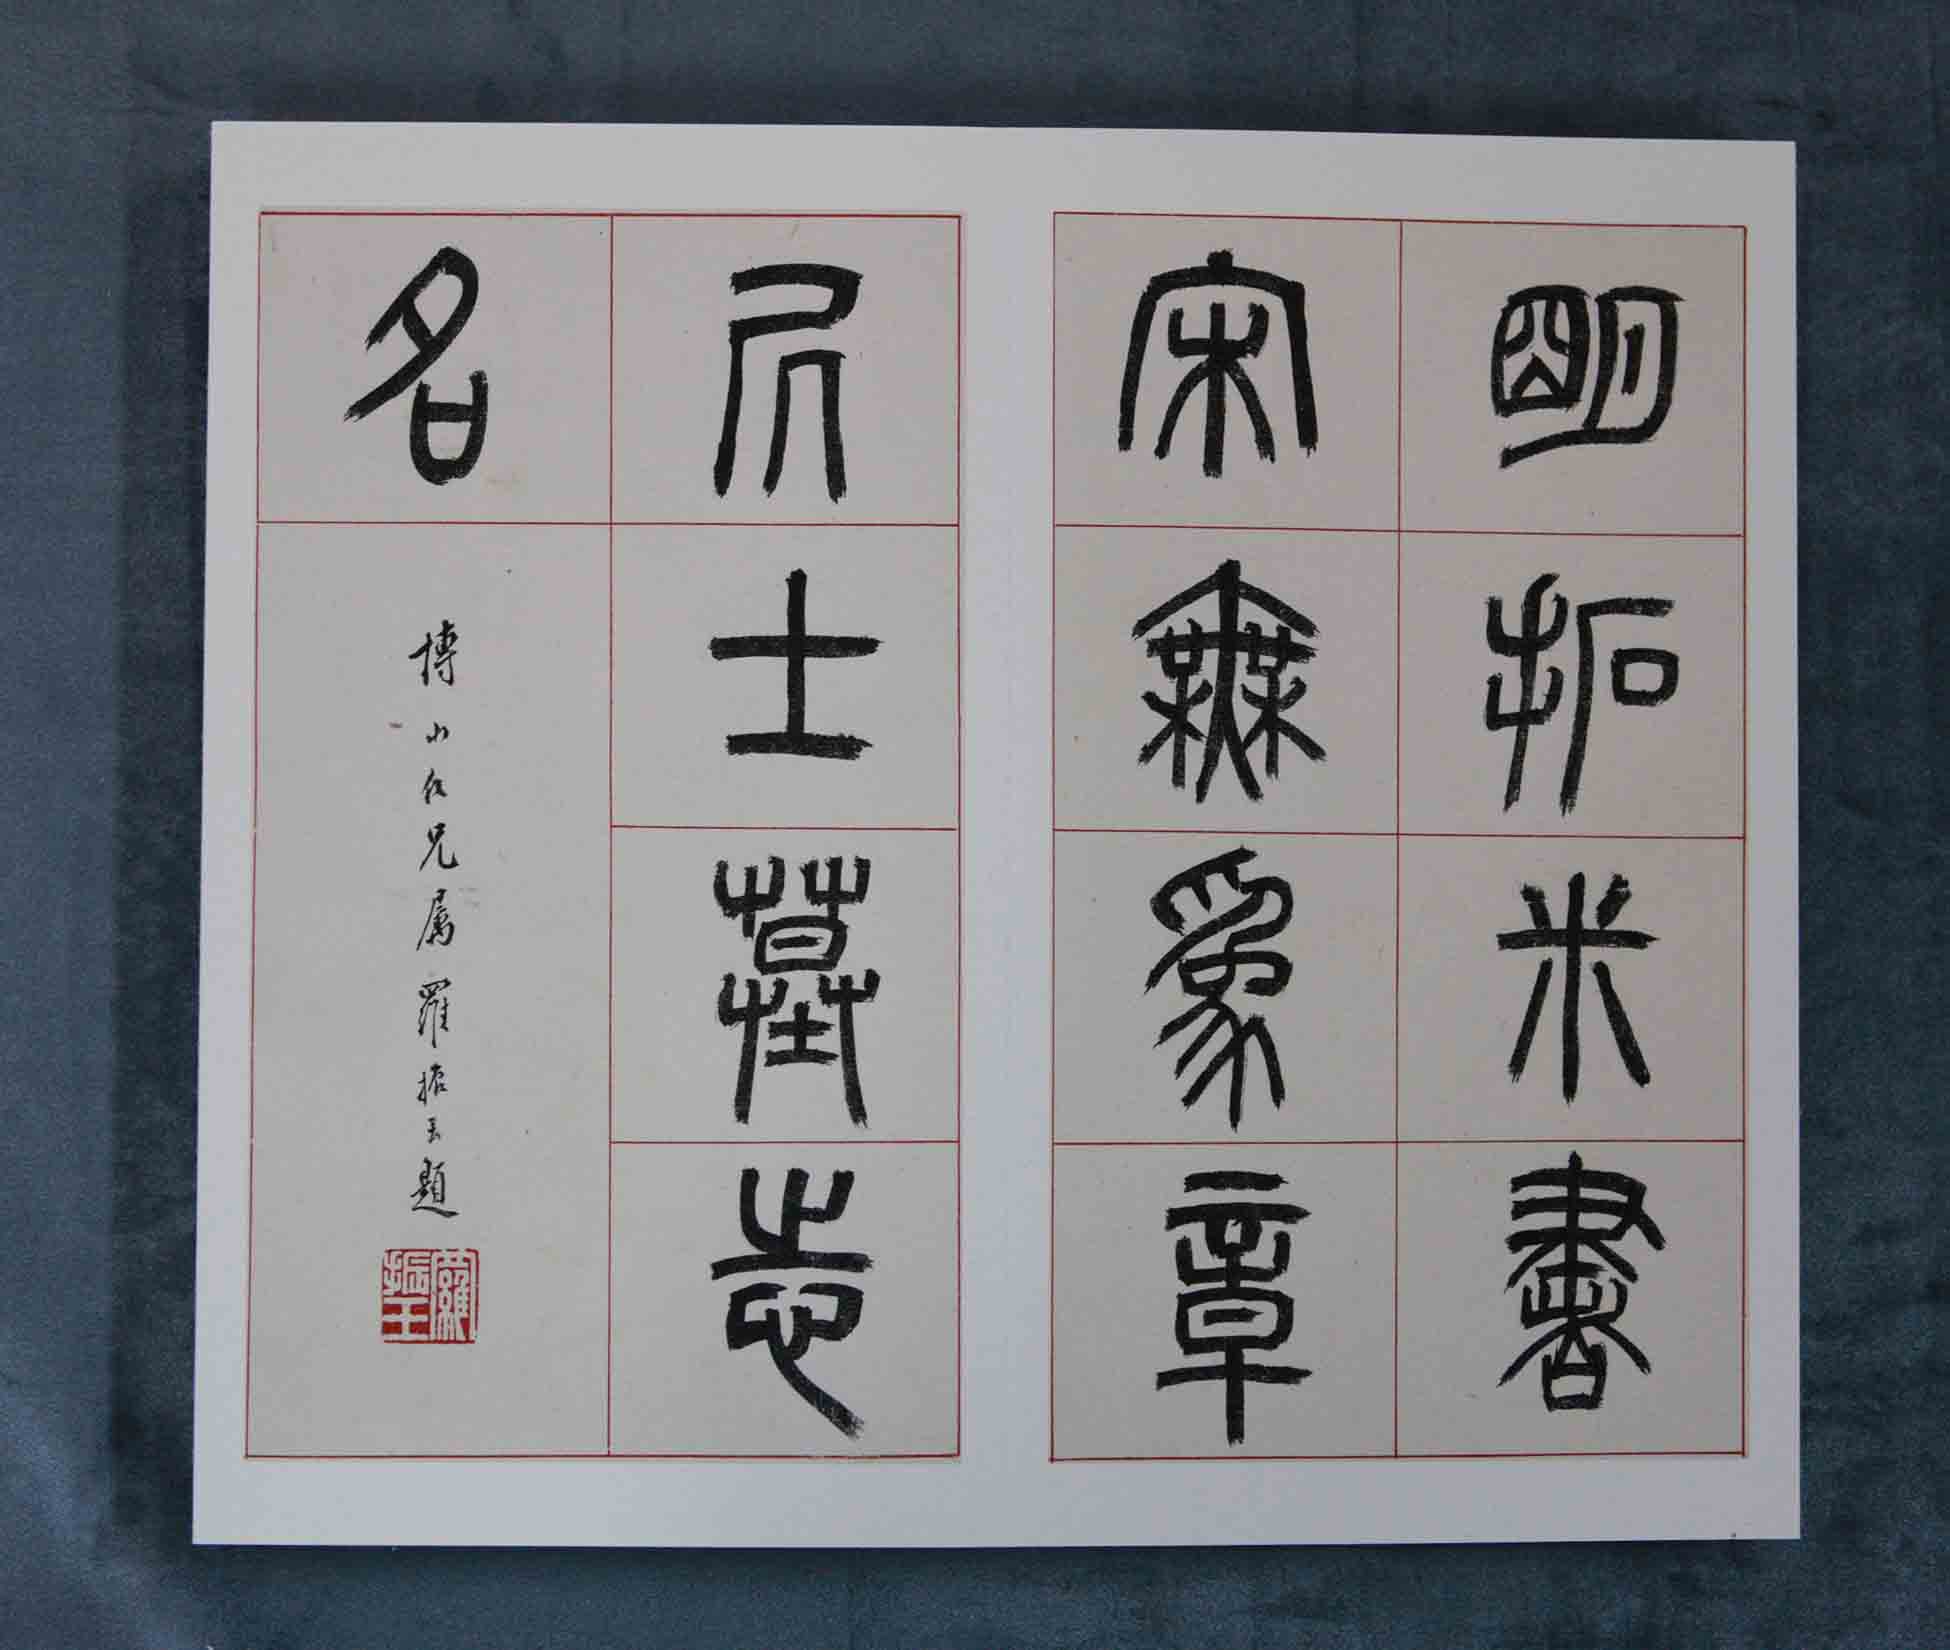 明拓米書
宋無為章
居士墓志
名
博山仁兄屬羅振玉題
羅振玉